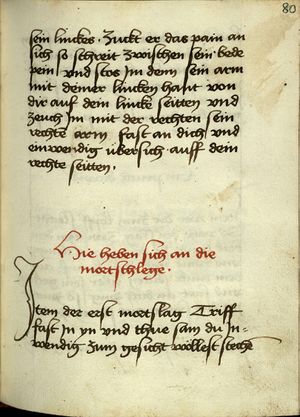 80
sein linckes. Zuckt er das pain an
sich so schreit zwischen sein bede
pein vnd stos Im denn sein arm
mit deiner lincken hant von
dir auf dein lincke seitten vnd
zeuch Im mit der rechten sein
rechte arm fast an dich vnd
einwendig übersich auff dein
rechte seitten.
Hie heben sich an die
mortschlege.
Item der erst mortslag Triff
fast In yn vnd thue sam du In-
wendig zum gesicht wöllest steche